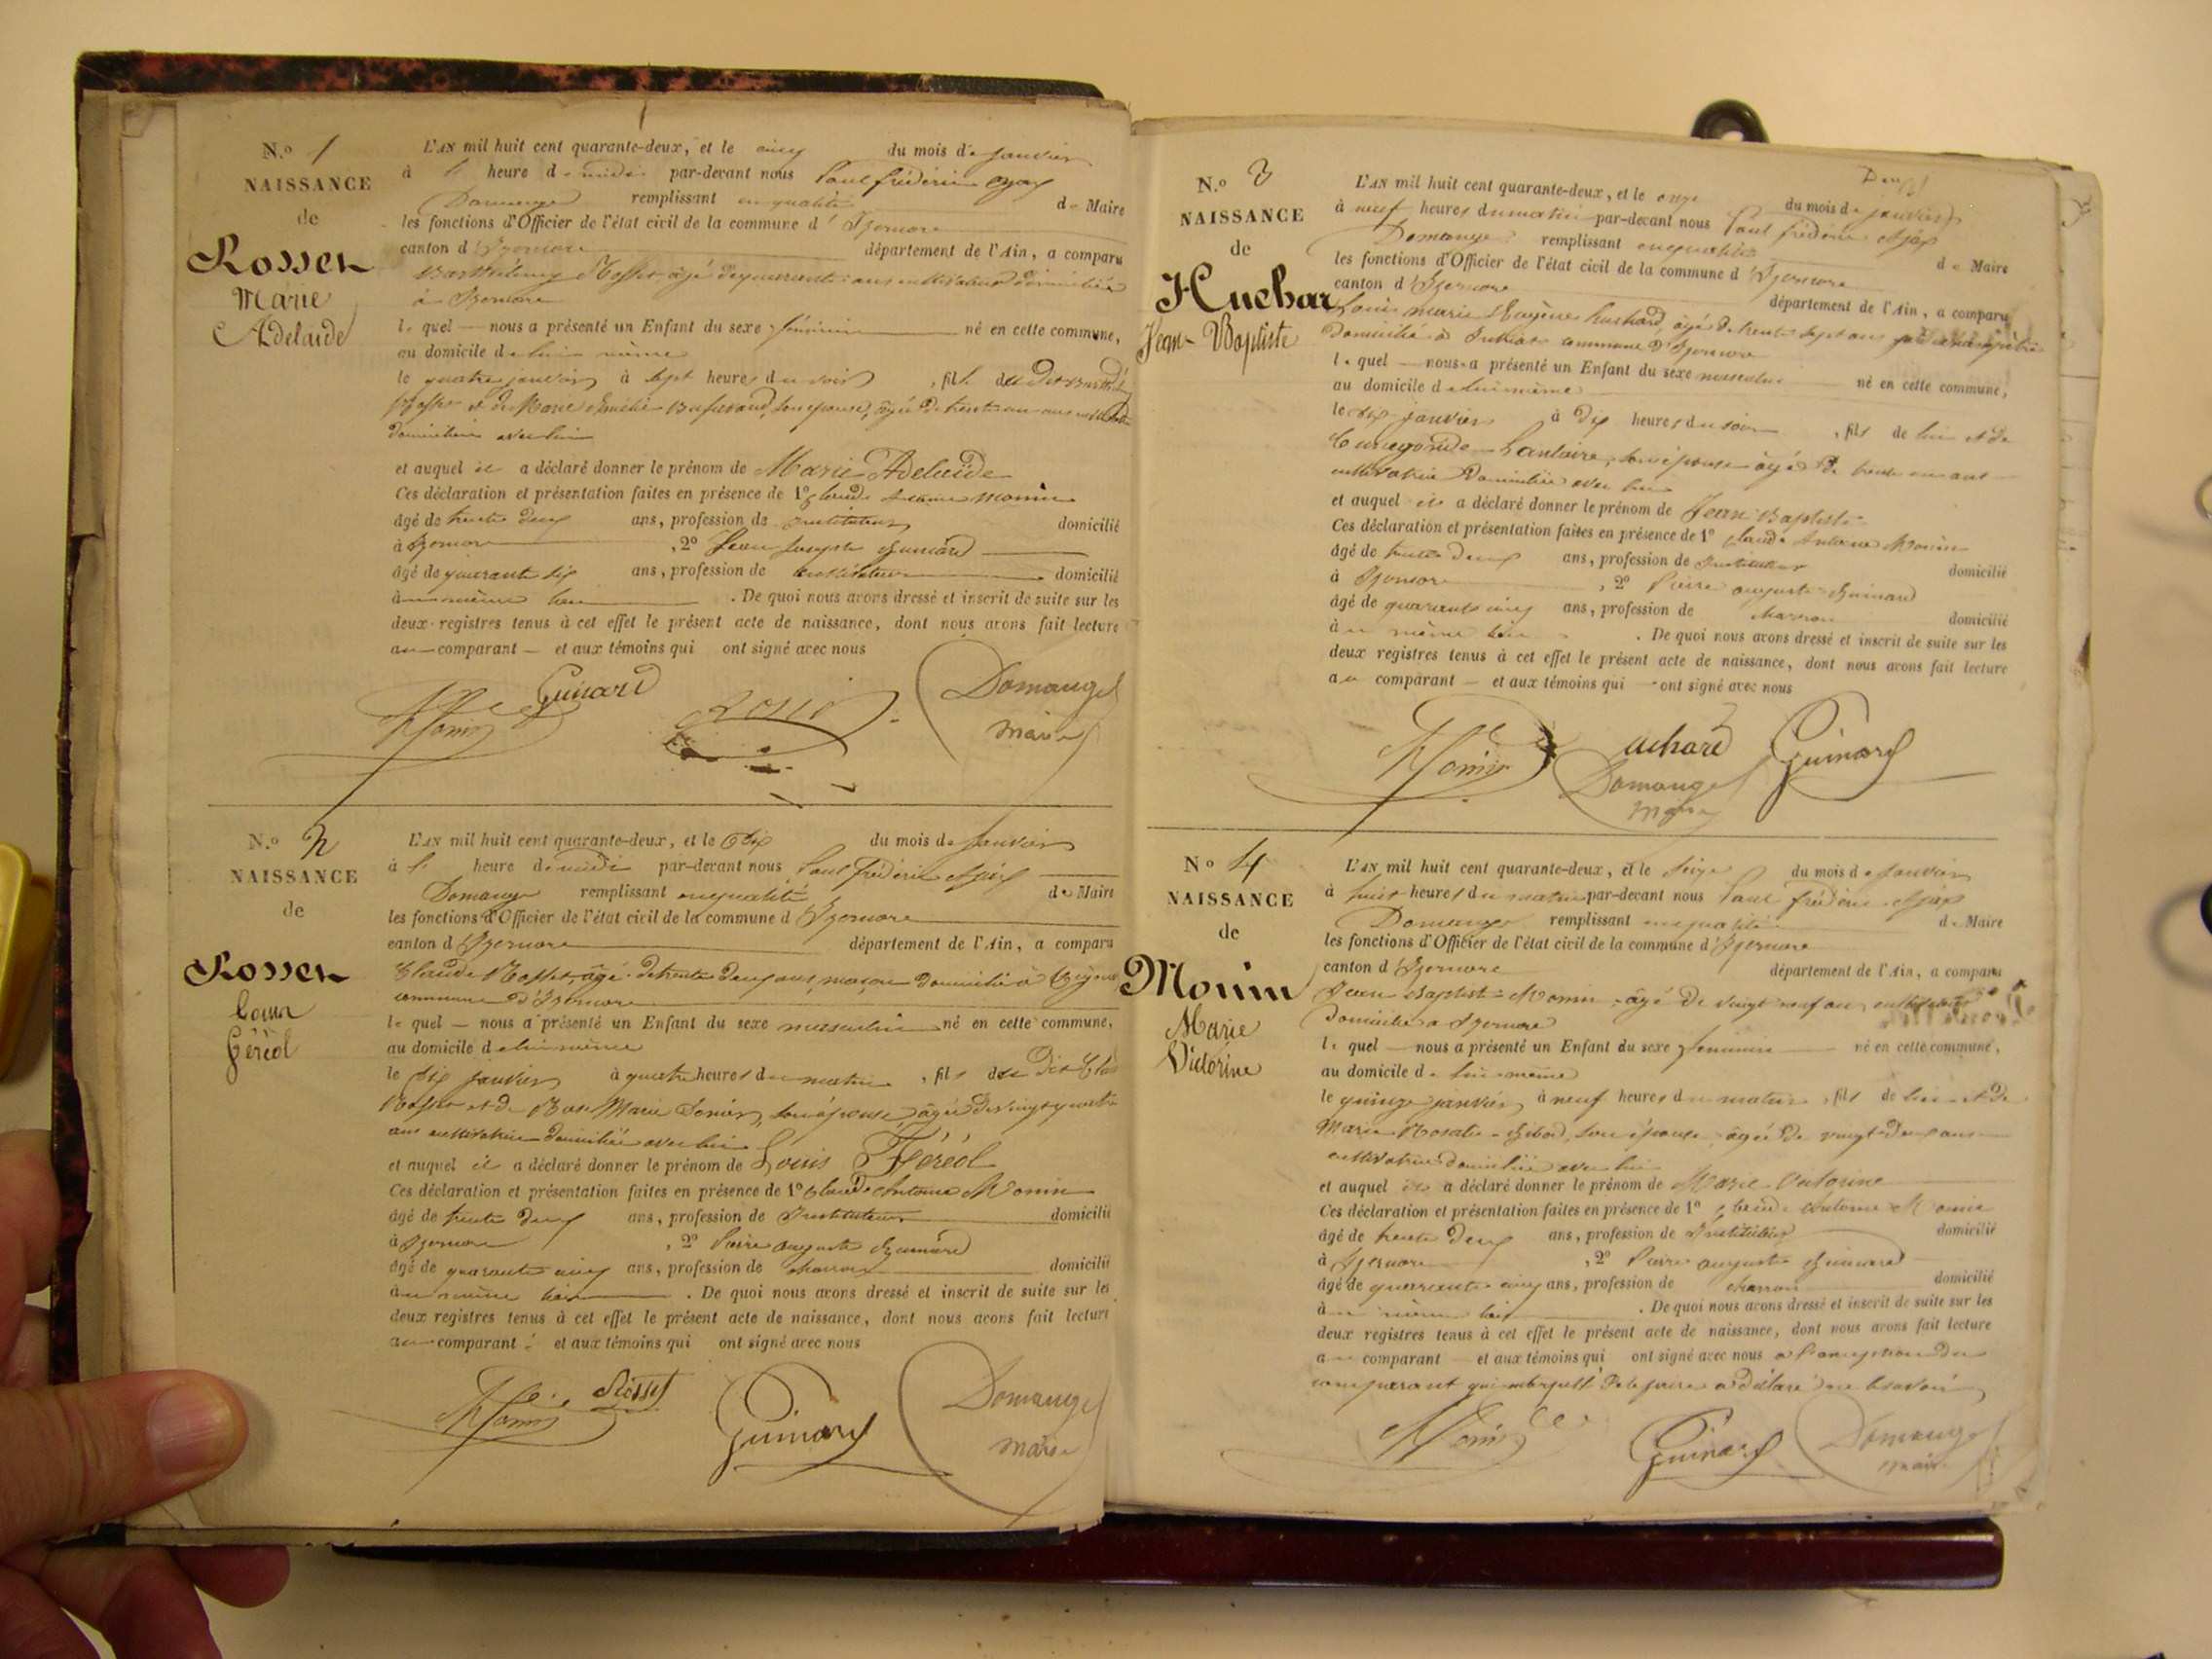 N.o 1
NAISSANCE
de
Rosset
Marie
Adelaide
L'AN mil huit cent quarante-deux, et le cinq du mois de janvier
à heure de midi par-devant nous Paul frédéric Ajax
Domange remplissant en qualité de Maire
les fonctions d'Officier de l'état civil de la commune d' Izernore
canton d'Izernore département de l'Ain, a comparu
Barthélemy Rosset âgé de quarante ans cultivateur domicilié
à Izernore
lequel nous a présenté un Enfant du sexe féminin né en cette commune,
au domicile de lui même
le quatre janvier à sept heures du soir, fils du dit
Rosset et de Marie son épouse, âgée de trente un ans
domiciliée avec lui
et auquel il a déclaré donner le prénom de Marie Adelaïde
Ces déclaration et présentation faites en présence de 1º Claude Antoine Monin
âgé de trente deux ans, profession de instituteur domicilié
à Izernore, 2º Jean Joseph Guinard
âgé de quarante six ans, profession de cultivateur domicilié
au même lieu. De quoi nous avons dressé et inscrit de suite sur les
deux registres tenus à cet effet le présent acte de naissance, dont nous avons fait lecture
au comparant et aux témoins qui ont signé avec nous
Monin Guinard Rosset Domange
maire
N.o 2
NAISSANCE
de
Rosset
Louis
Féréol
L'AN mil huit cent quarante-deux, et le dix du mois de janvier
à heure de midi par-devant nous Paul frédéric Ajax
Domange remplissant en qualité de Maire
les fonctions d'Officier de l'état civil de la commune d'Izernore
canton d'Izernore département de l'Ain, a comparu
Claude Rosset, âgé de trente deux ans, maçon domicilié à
commune d'Izernore
lequel nous a présenté un Enfant du sexe masculin né en cette commune,
au domicile de lui même
le dix janvier à quatre heures du matin, fils du dit
Rosset et de Rose Marie son épouse, âgée de vingt quatre
ans cultivatrice domiciliée avec lui
et auquel il a déclaré donner le prénom de Louis Féréol
Ces déclaration et présentation faites en présence de 1º Claude Antoine Monin
âgé de trente deux ans, profession de Instituteur domicilié
à Izernore, 2º Pierre auguste Guinard
âgé de quarante cinq ans, profession de charron domicilié
au même lieu. De quoi nous avons dressé et inscrit de suite sur les
deux registres tenus à cet effet le présent acte de naissance, dont nous avons fait lecture
au comparant et aux témoins qui ont signé avec nous
Monin Rosset Guinard Domange
maire
Deux
N.o 3
NAISSANCE
de
Huchar
Jean-Baptiste
L'AN mil huit cent quarante-deux, et le onze du mois de janvier
à neuf heures du matin par-devant nous Paul frédéric Ajax
Domange remplissant en qualité de Maire
les fonctions d'Officier de l'état civil de la commune d'Izernore
canton d'Izernore département de l'Ain, a comparu
Louis marie Eugène huchard, âgé de trente sept ans
domicilié à commune d'Izernore
lequel nous a présenté un Enfant du sexe masculin né en cette commune,
au domicile de lui même
le dix janvier à dix heures du soir, fils de lui et de
son épouse âgée de trente un ans
cultivatrice domiciliée avec lui
et auquel il a déclaré donner le prénom de Jean Baptiste
Ces déclaration et présentation faites en présence de 1º Claude Antoine Monin
âgé de trente deux ans, profession de Instituteur domicilié
à Izernore, 2º Pierre auguste Guinard
âgé de quarante cinq ans, profession de charron domicilié
au même lieu. De quoi nous avons dressé et inscrit de suite sur les
deux registres tenus à cet effet le présent acte de naissance, dont nous avons fait lecture
au comparant et aux témoins qui ont signé avec nous
Monin uchard Guinard
Domange
maire
No 4
NAISSANCE
de
Monin
Marie
Victorine
L'AN mil huit cent quarante-deux, et le seize du mois de janvier
à huit heures du matin par-devant nous Paul frédéric Ajax
Domange remplissant en qualité de Maire
les fonctions d'Officier de l'état civil de la commune d'Izernore
canton d'Izernore département de l'Ain, a comparu
Jean Baptiste Monin, âgé de vingt neuf ans, cultivateur
domicilié à Izernore
lequel nous a présenté un Enfant du sexe féminin né en cette commune,
au domicile de lui même
le quinze janvier à neuf heures du matin, fils de lui et de
Marie Rosalie son épouse âgée de vingt deux ans
cultivatrice domiciliée avec lui
et auquel il a déclaré donner le prénom de Marie Victorine
Ces déclaration et présentation faites en présence de 1º Claude Antoine Monin
âgé de trente deux ans, profession de Instituteur domicilié
à Izernore, 2º Pierre auguste Guinard
âgé de quarante cinq ans, profession de charron domicilié
au même lieu. De quoi nous avons dressé et inscrit de suite sur les
deux registres tenus à cet effet le présent acte de naissance, dont nous avons fait lecture
au comparant et aux témoins qui ont signé avec nous à l'exception du
comparant qui interpellé de le faire a déclaré ne le savoir
Monin Guinard Domange
maire